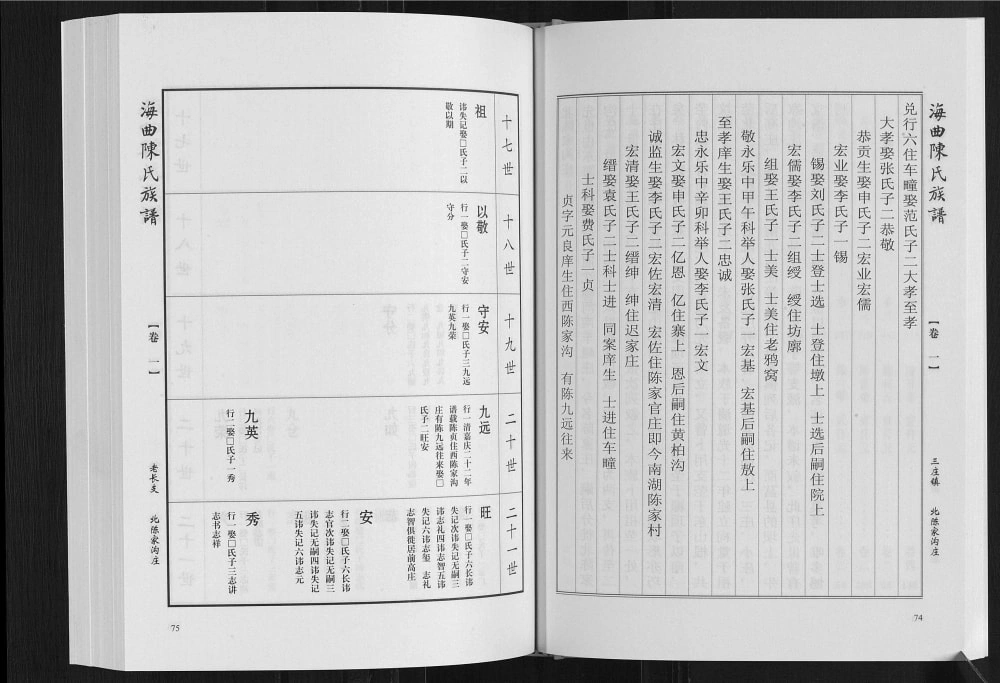 海曲陳氏族譜
【卷 一】
三庄镇 北陈家沟庄
兑行六住车疃娶范氏子二大孝至孝
大孝娶张氏子二恭敬
恭贡生娶申氏子二宏业宏儒
宏业娶李氏子一锡
锡娶刘氏子二士登士选 士登住墩上 士选后嗣住院上
宏儒娶李氏子二组绶 绶住坊廓
组娶王氏子一士美 士美住老鸦窝
敬永乐中甲午科举人娶张氏子一宏基 宏基后嗣住敖上
至孝庠生娶王氏子二忠诚
忠永乐中辛卯科举人娶李氏子一宏文
宏文娶申氏子二亿恩 亿住寨上 恩后嗣住黄柏沟
诚监生娶李氏子二宏佐宏清 宏佐住陈家官庄即今南湖陈家村
宏清娶王氏子二缙绅 绅住迟家庄
缙娶袁氏子二士科士进 同案庠生 士进住车疃
士科娶费氏子一贞
贞字元良庠生住西陈家沟 有陈九远往来
74
十七世
祖
讳失记娶□氏子二以
敬以期
十八世
以敬
行一娶□氏子二守安
守分
十九世
守安
行一娶□氏子三九远
九英九荣
二十世
九远
行一清嘉庆二十二年
谱载陈贞住西陈家沟
庄有陈九远往来娶□
氏子二旺安
九英
行二娶□氏子一秀
二十一世
旺
行一娶□氏子六长讳
失记次讳失记无嗣三
讳志礼四讳志智五讳
失记六讳志玺 志礼
志智俱徙居前高庄
安
行二娶□氏子六长讳
志官次讳失记无嗣三
讳失记无嗣四讳失记
五讳失记六讳志元
秀
行一娶□氏子三志讲
志书志样
海曲陳氏族譜
【卷 一】
老长支 北陈家沟庄
75